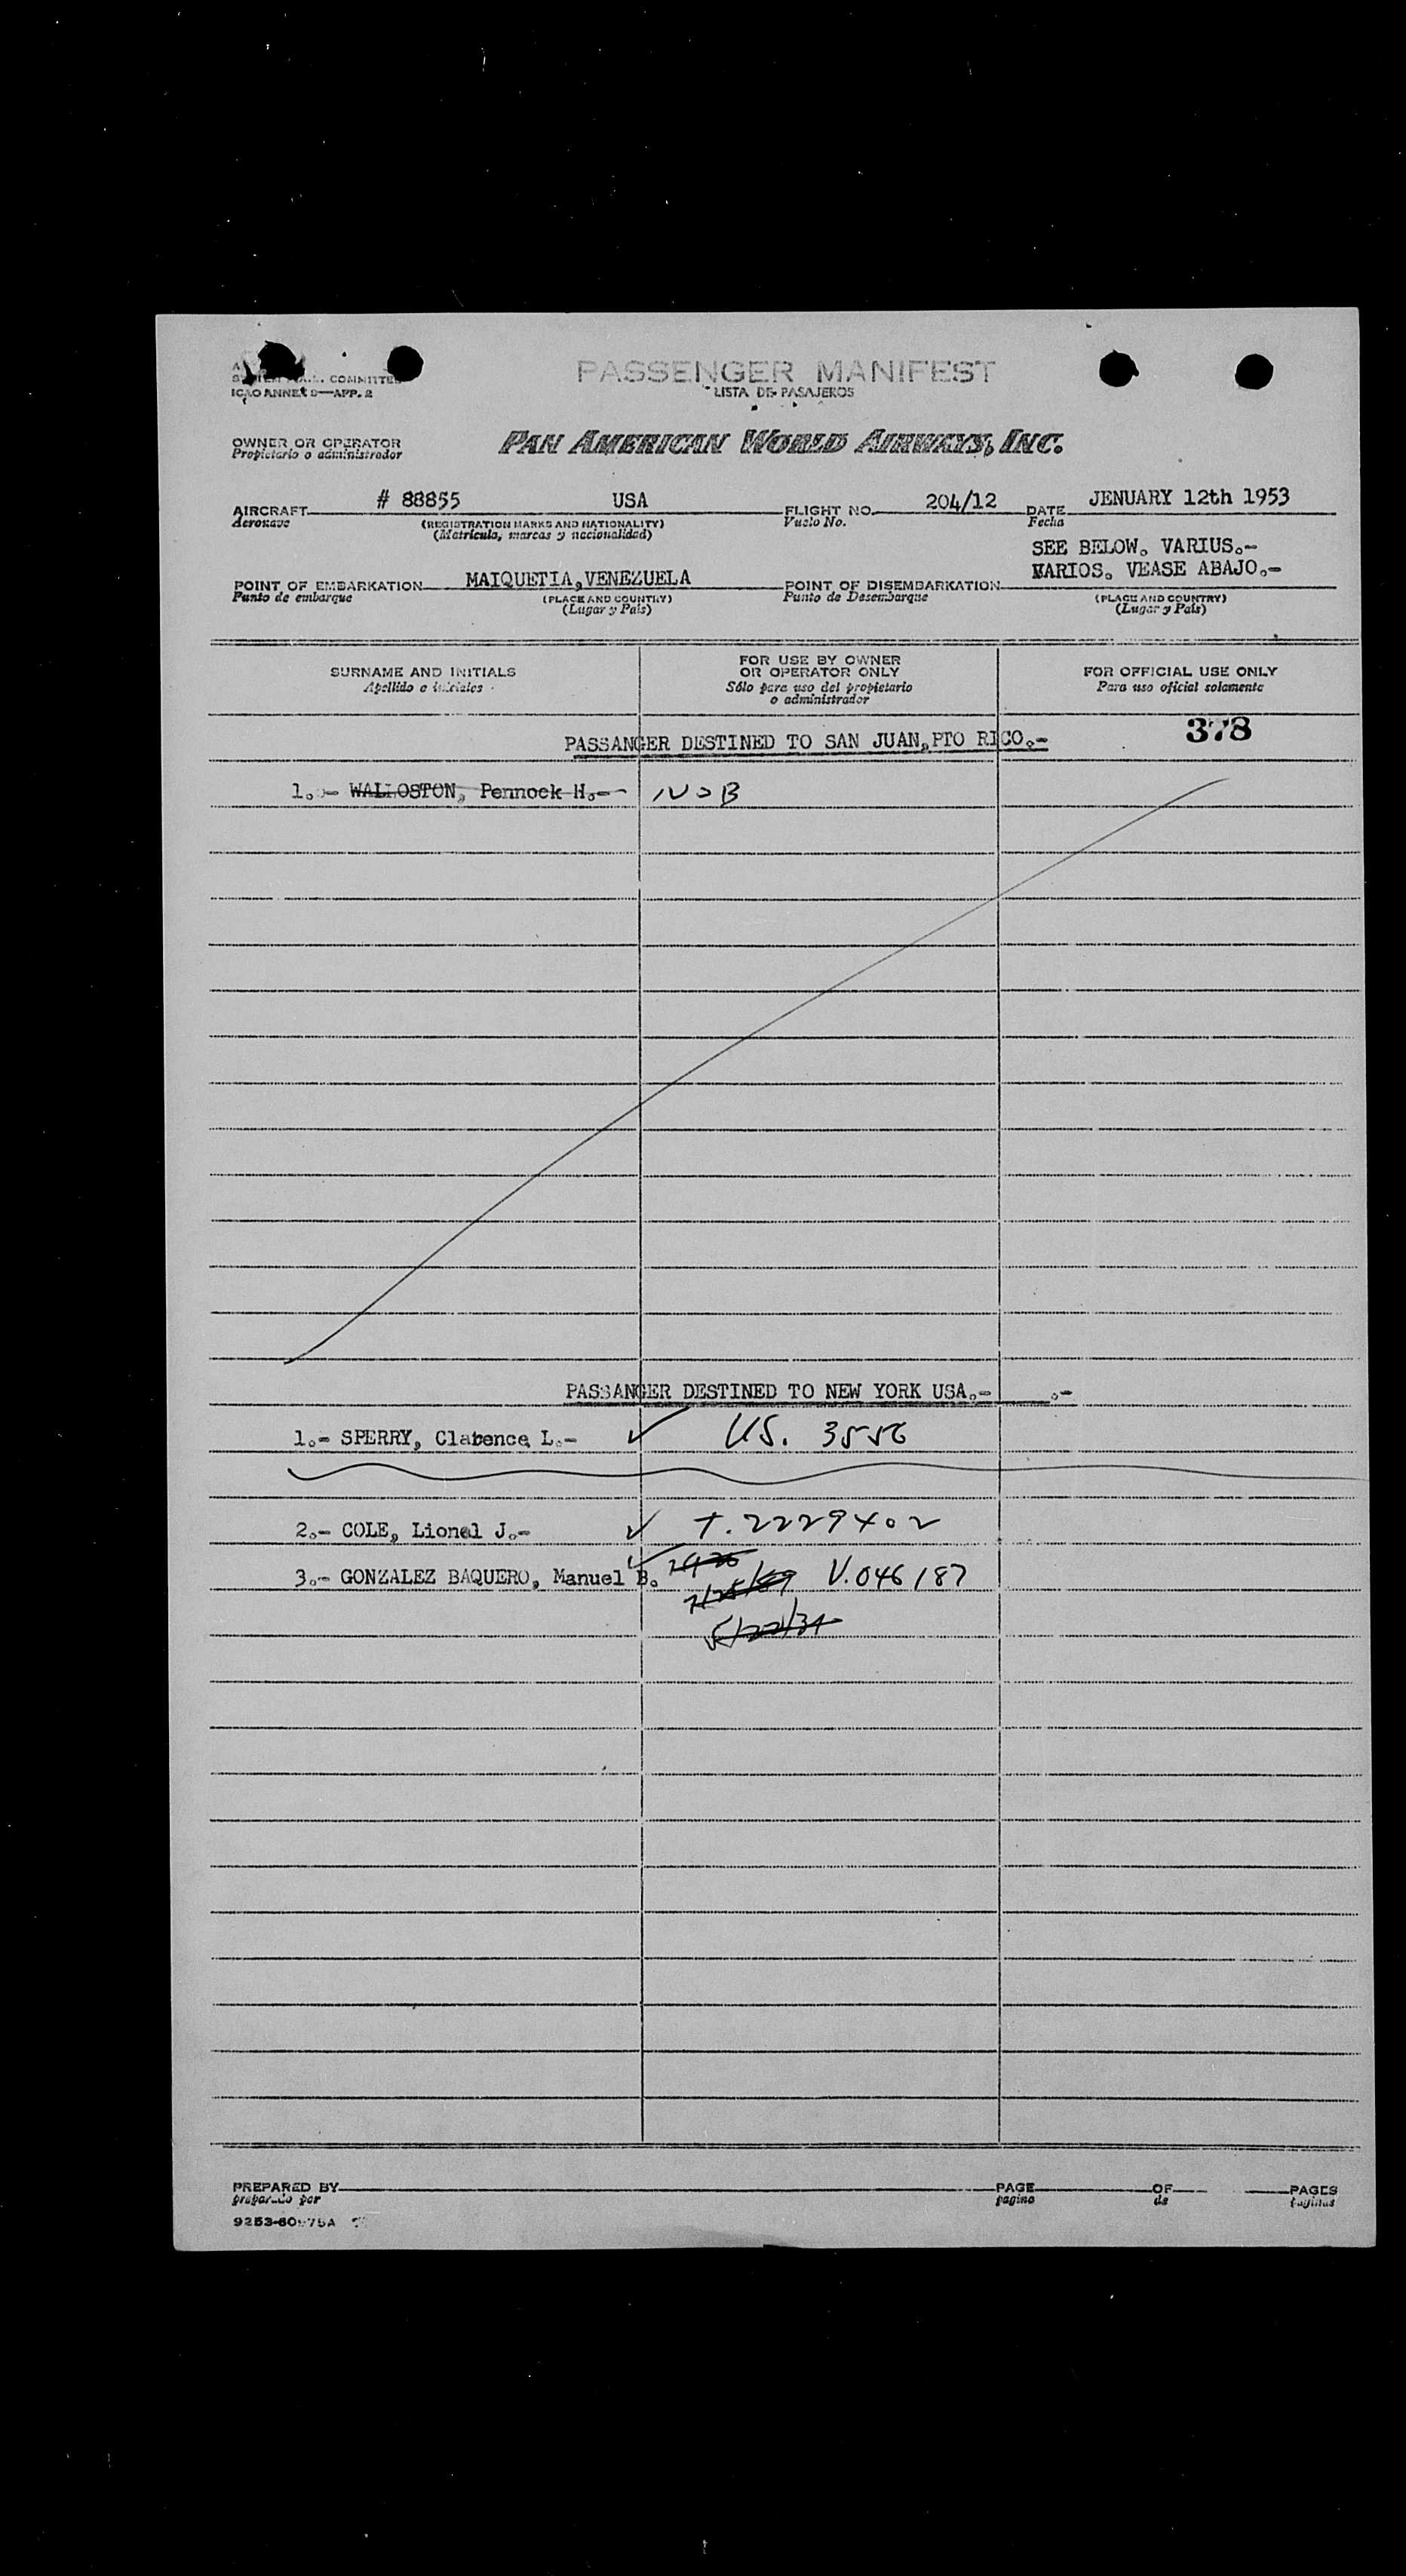 PASSENGER MANIFEST
COMMITTEE
LISTA DE PASAJEROS
ICAO ANNEX 9—APP. 2
OWNER OR OPERATOR PAN AMERICAN WORLD AIRWAYS, INC.
Propietario o administrador
AIRCRAFT # 88855 USA FLIGHT NO. 204/12 DATE JENUARY 12th 1953
Aeronave (REGISTRATION MARKS AND NATIONALITY) Vuelo No. Fecha
(Matrícula, marcas y nacionalidad)
SEE BELOW. VARIUS.-
VARIOS. VEASE ABAJO.-
POINT OF EMBARKATION MAIQUETIA,VENEZUELA POINT OF DISEMBARKATION
Punto de embarque (PLACE AND COUNTRY) Punto de Desembarque (PLACE AND COUNTRY)
(Lugar y País) (Lugar y País)
SURNAME AND INITIALS FOR USE BY OWNER OR OPERATOR ONLY FOR OFFICIAL USE ONLY
Apellido e iniciales Sólo para uso del propietario o administrador Para uso oficial solamente
378
PASSANGER DESTINED TO SAN JUAN,PTO RICO.-
1.- WALLOSTON, Pennock H.- NOB
PASSANGER DESTINED TO NEW YORK USA.- .-
1.- SPERRY, Clarence L.- ✓ US. 3556
2.- COLE, Lionel J.- ✓ T.2229402
3.- GONZALEZ BAQUERO, Manuel B. ✓ V.046187
5/22/31
PREPARED BY PAGE OF PAGES
preparado por pagina de paginas